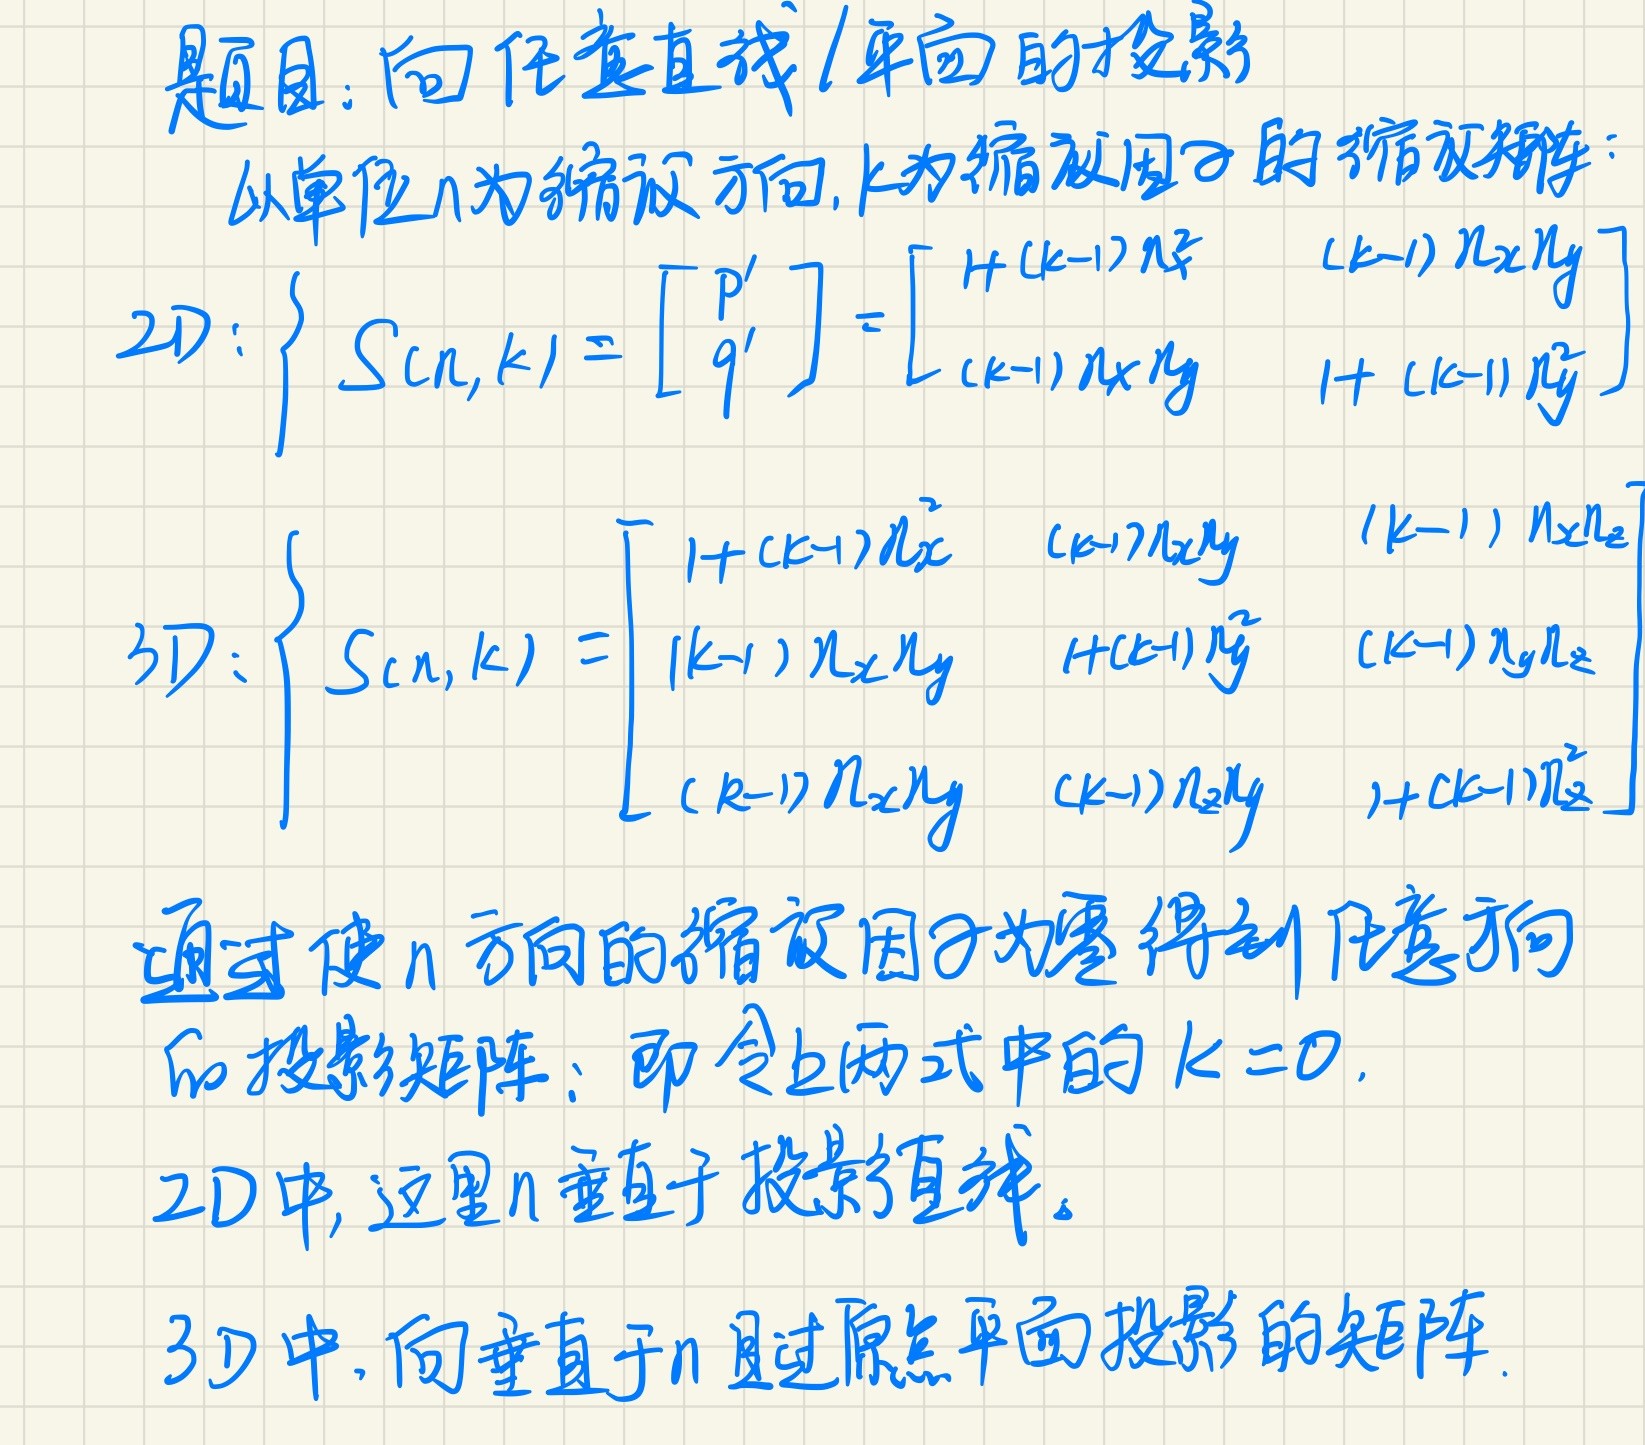 题目:向任意直线/平面的投影
以单位n为缩放方向,k为缩放因子的缩放矩阵:
2D: { S(n,k) = [p' q'] = [1+(k-1)n_x^2 (k-1)n_xn_y
(k-1)n_xn_y 1+(k-1)n_y^2]
3D: { S(n,k) = [1+(k-1)n_x^2 (k-1)n_xn_y (k-1)n_xn_z
(k-1)n_xn_y 1+(k-1)n_y^2 (k-1)n_yn_z
(k-1)n_xn_y (k-1)n_zn_y 1+(k-1)n_z^2]
通过使n方向的缩放因子为零得到任意方向
的投影矩阵:即令上两式中的k=0.
2D中,这里n垂直于投影直线。
3D中,向垂直于n且过原点平面投影的矩阵.